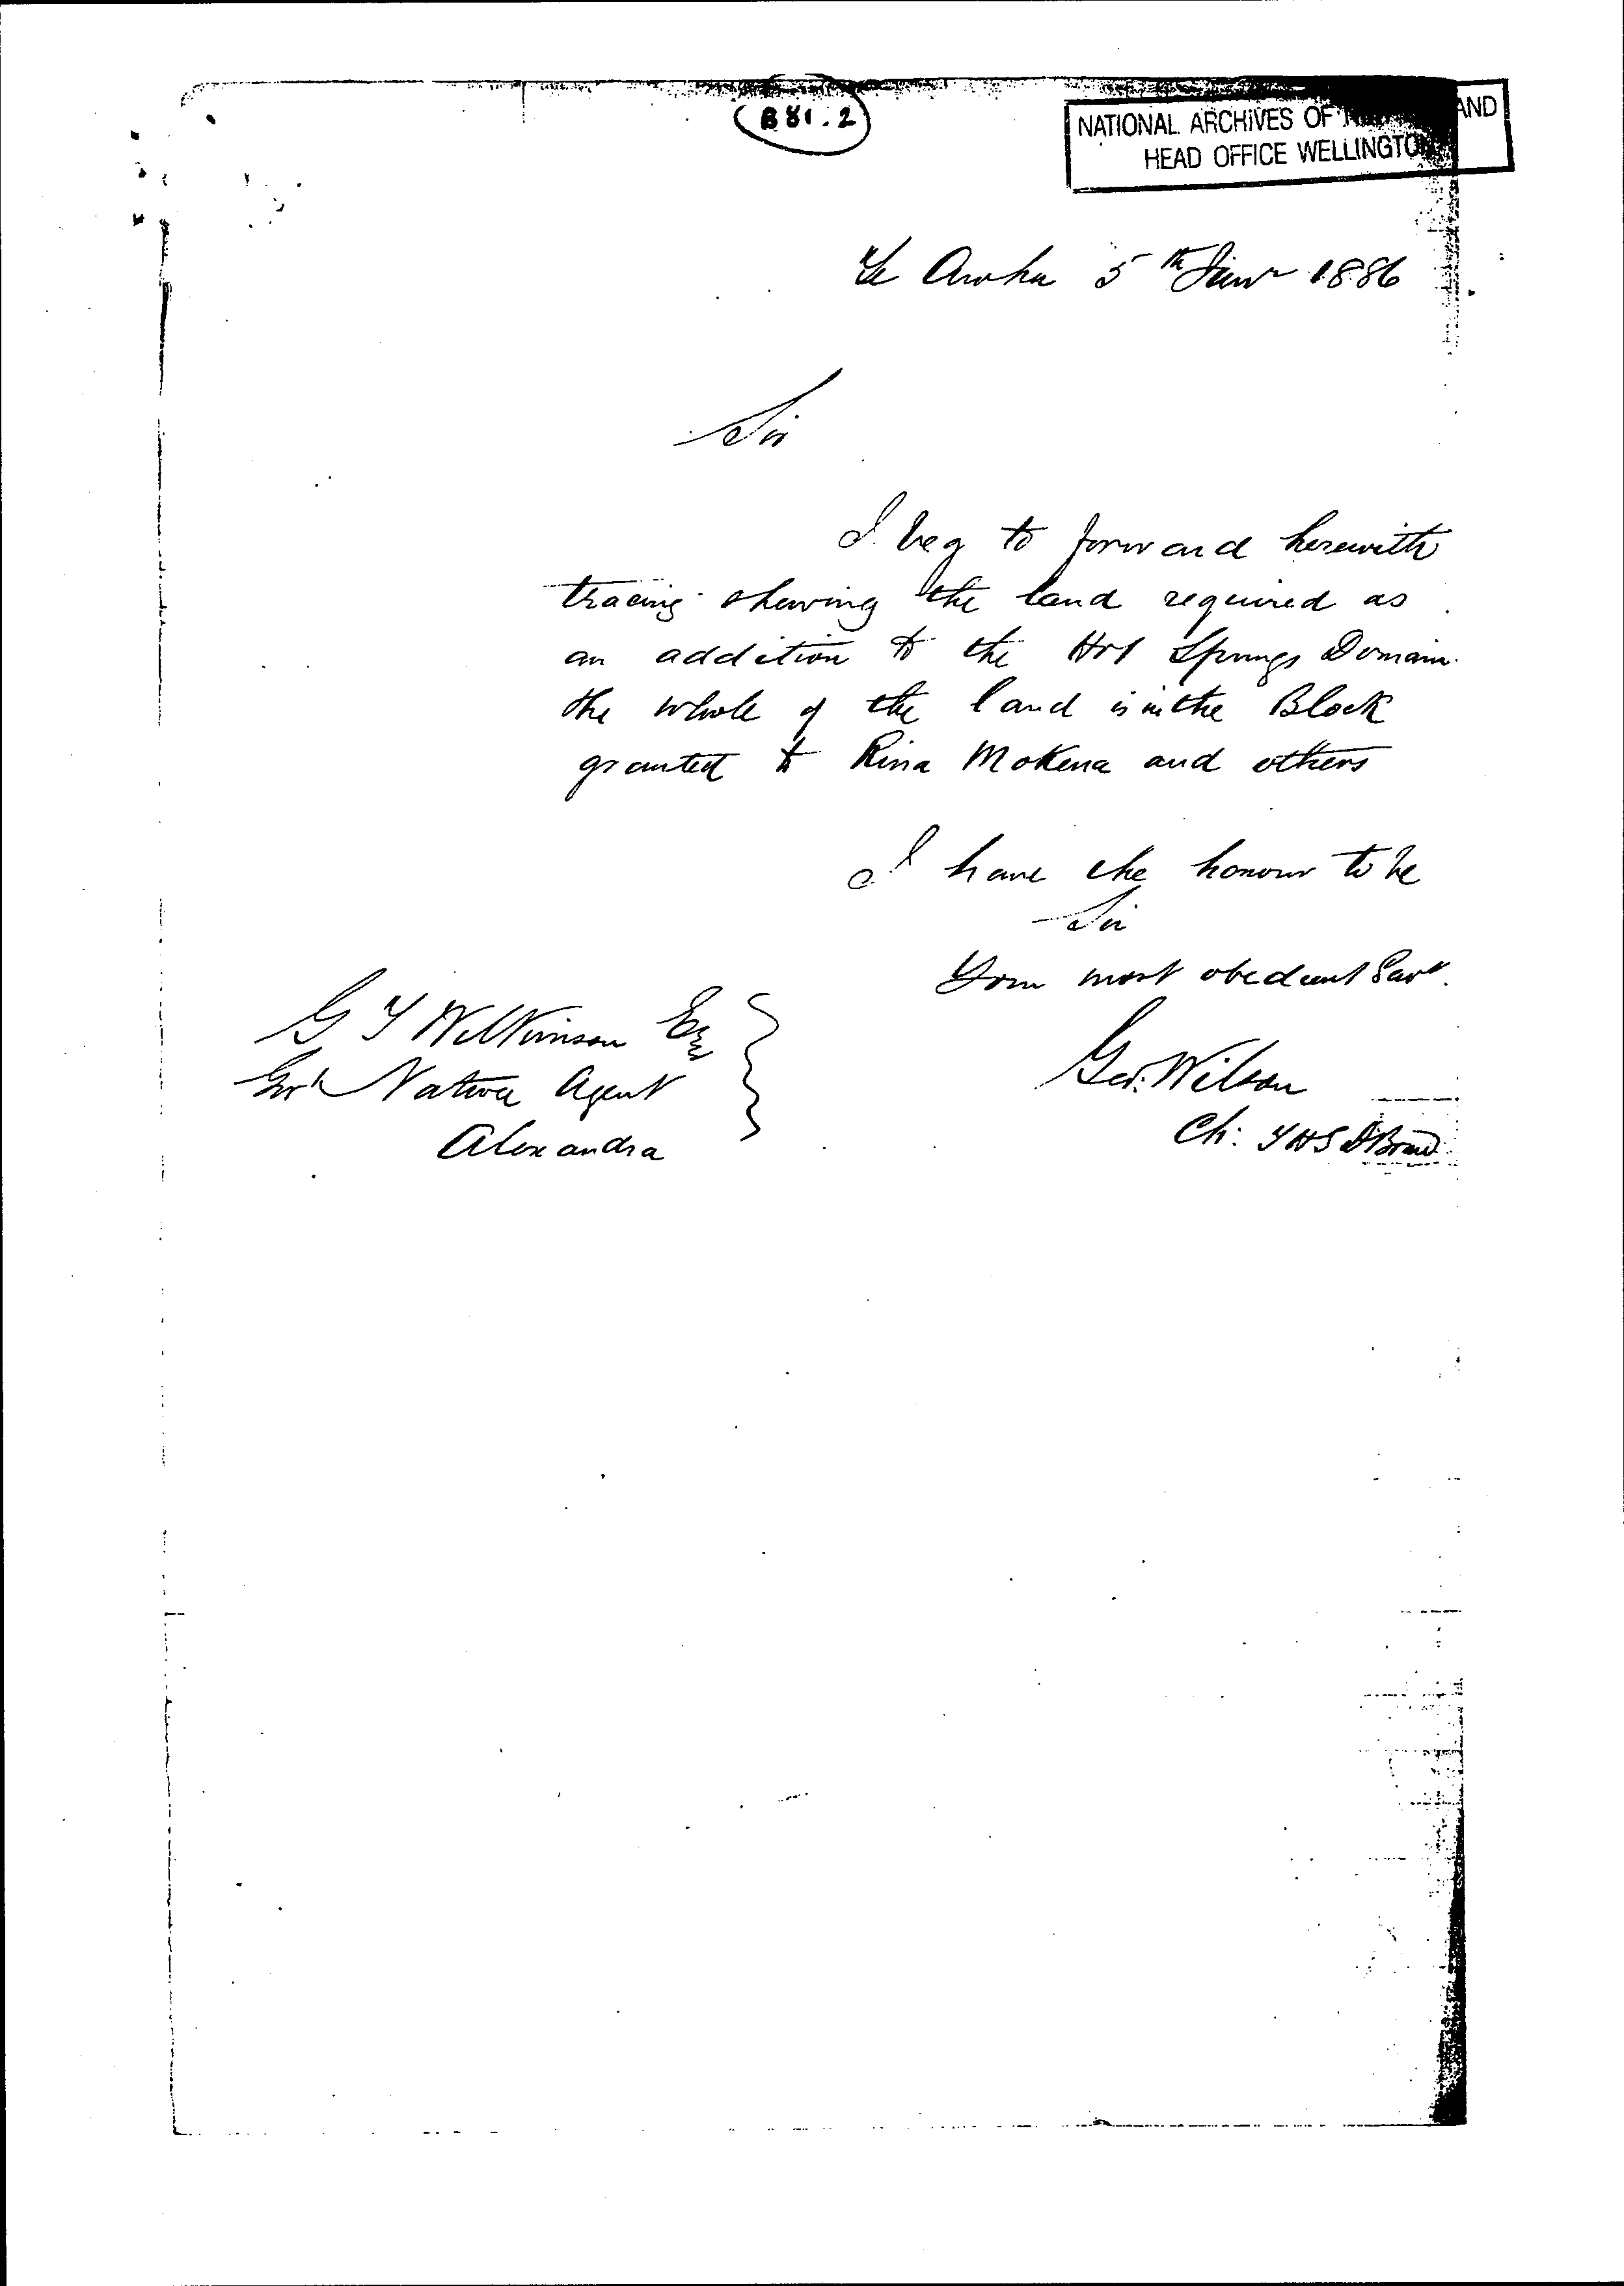 B81.2
NATIONAL ARCHIVES OF AND
HEAD OFFICE WELLINGTON
Te Aroha 5th 1886
Sir
I beg to forward herewith
tracing shewing the land required as
an addition to the Hot Springs Domain
the whole of the land is in the Block
granted to Rina Mokena and others
I have the honour to be
Sir
Your most obedient Servt.
G T Wilkinson Esq
Govt Native Agent
Alexandra
Geo. Wilson
Ch: T H S D Board